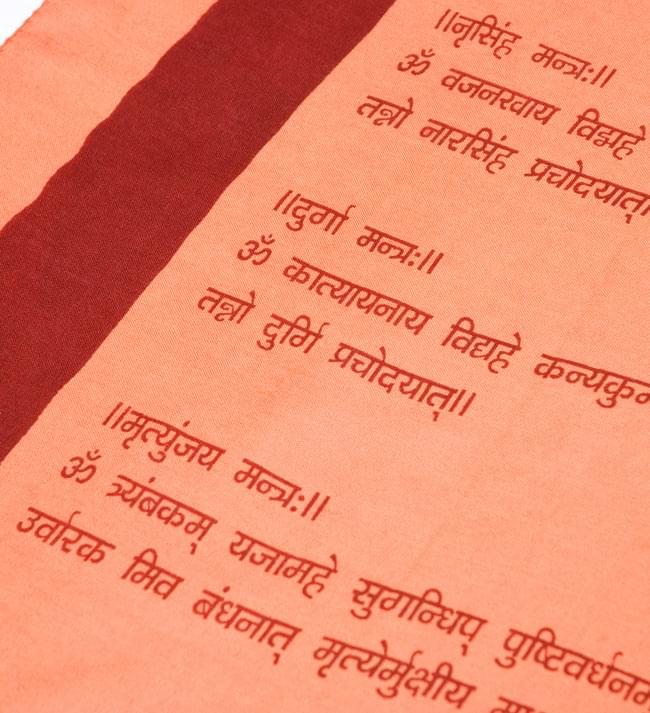 ॥नृसिंह मन्त्रः॥
ॐ वजनरवाय विद्महे
तन्नो नारसिंह प्रचोदयात्
॥दुर्गा मन्त्रः॥
ॐ कात्यायनाय विद्यहे कन्यकु
तन्नो दुर्गि प्रचोदयात्॥
॥मृत्युंजय मन्त्रः॥
ॐ त्र्यंबकम् यजामहे सुगन्धिप् पुष्टिवर्धनम
उर्वारक मिव बंधनात् मृत्येर्मुक्षीय